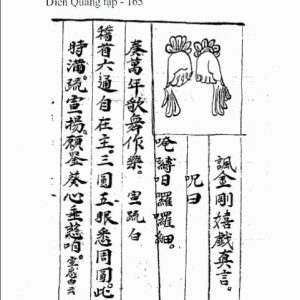 Diễn Quang tập - 165
諷金剛嬉戲真言。
呪曰
唵嚩日囉囉細。
奏萬年歌舞作樂。宣疏白
稽首六通自在主。三圓五眼悉周圓。此
時滿疏宣揚。願鑒葵心垂慈